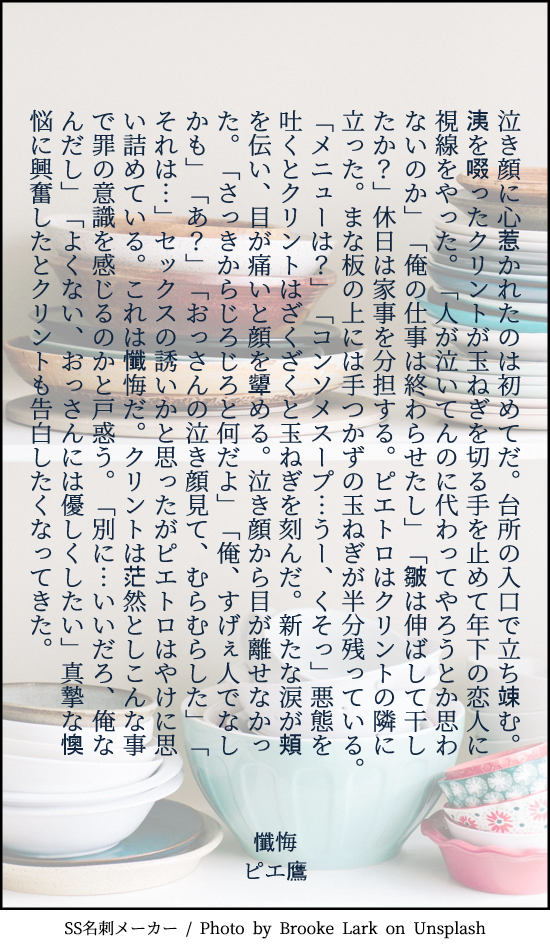 泣き顔に心惹かれたのは初めてだ。台所の入口で立ち竦む。
洟を啜ったクリントが玉ねぎを切る手を止めて年下の恋人に
視線をやった。「人が泣いてんのに代わってやろうとか思わ
ないのか」「俺の仕事は終わらせたし」「皺は伸ばして干し
たか？」休日は家事を分担する。ピエトロはクリントの隣に
立った。まな板の上には手つかずの玉ねぎが半分残っている。
「メニューは？」「コンソメスープ…うー、くそっ」悪態を
吐くとクリントはざくざくと玉ねぎを刻んだ。新たな涙が頬
を伝い、目が痛いと顔を顰める。泣き顔から目が離せなかっ
た。「さっきからじろじろと何だよ」「俺、すげぇ人でなし
かも」「あ？」「おっさんの泣き顔見て、むらむらした」「
それは…」セックスの誘いかと思ったがピエトロはやけに思
い詰めている。これは懺悔だ。クリントは茫然としこんな事
で罪の意識を感じるのかと戸惑う。「別に…いいだろ、俺な
んだし」「よくない、おっさんには優しくしたい」真摯な懊
悩に興奮したとクリントも告白したくなってきた。
懺悔
ピエ鷹
SS名刺メーカー / Photo by Brooke Lark on Unsplash